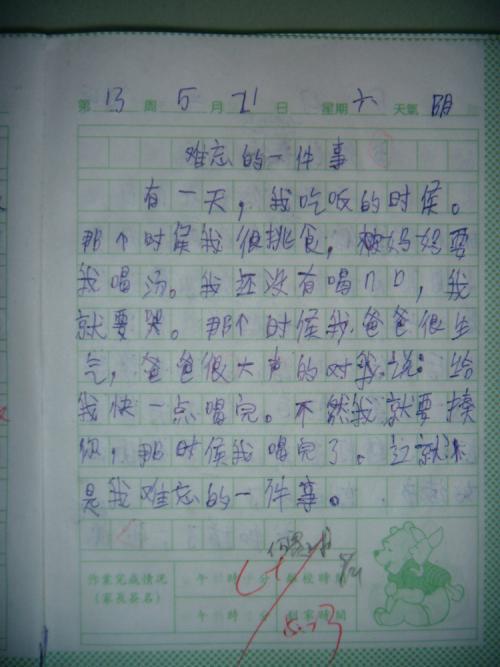 第13周5月21日 星期六 天氣 阴
难忘的一件事
有一天，我吃饭的时侯。
那个时侯我很挑食，被妈妈要
我喝汤。我还没有喝几口，我
就要哭。那个时侯我爸爸很生
气，爸爸很大声的对我说：给
我快一点喝完。不然我就要揍
你，那时侯我喝完了。这就
是我难忘的一件事。
作業完成情况
(家長簽名)
午 時 分 離校時間
午 時 分 到家時間